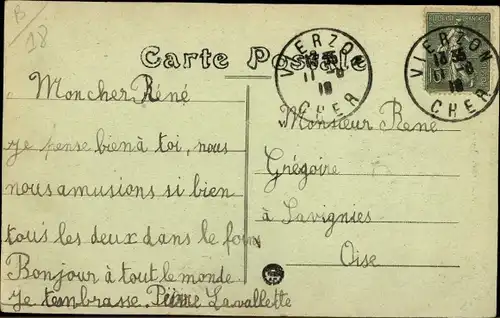 B
18
Carte Postale
VIERZON
18 35
11 - 8
18
CHER
VIERZON
18 35
11 - 8
18
CHER
Mon cher René
je pense bien à toi, nous
nous amusions si bien
tous les deux dans le
Bonjour à tout le monde
je tembrasse. Pierre Lavallette
Monsieur René
Grégoire
à Lavignies
Oise